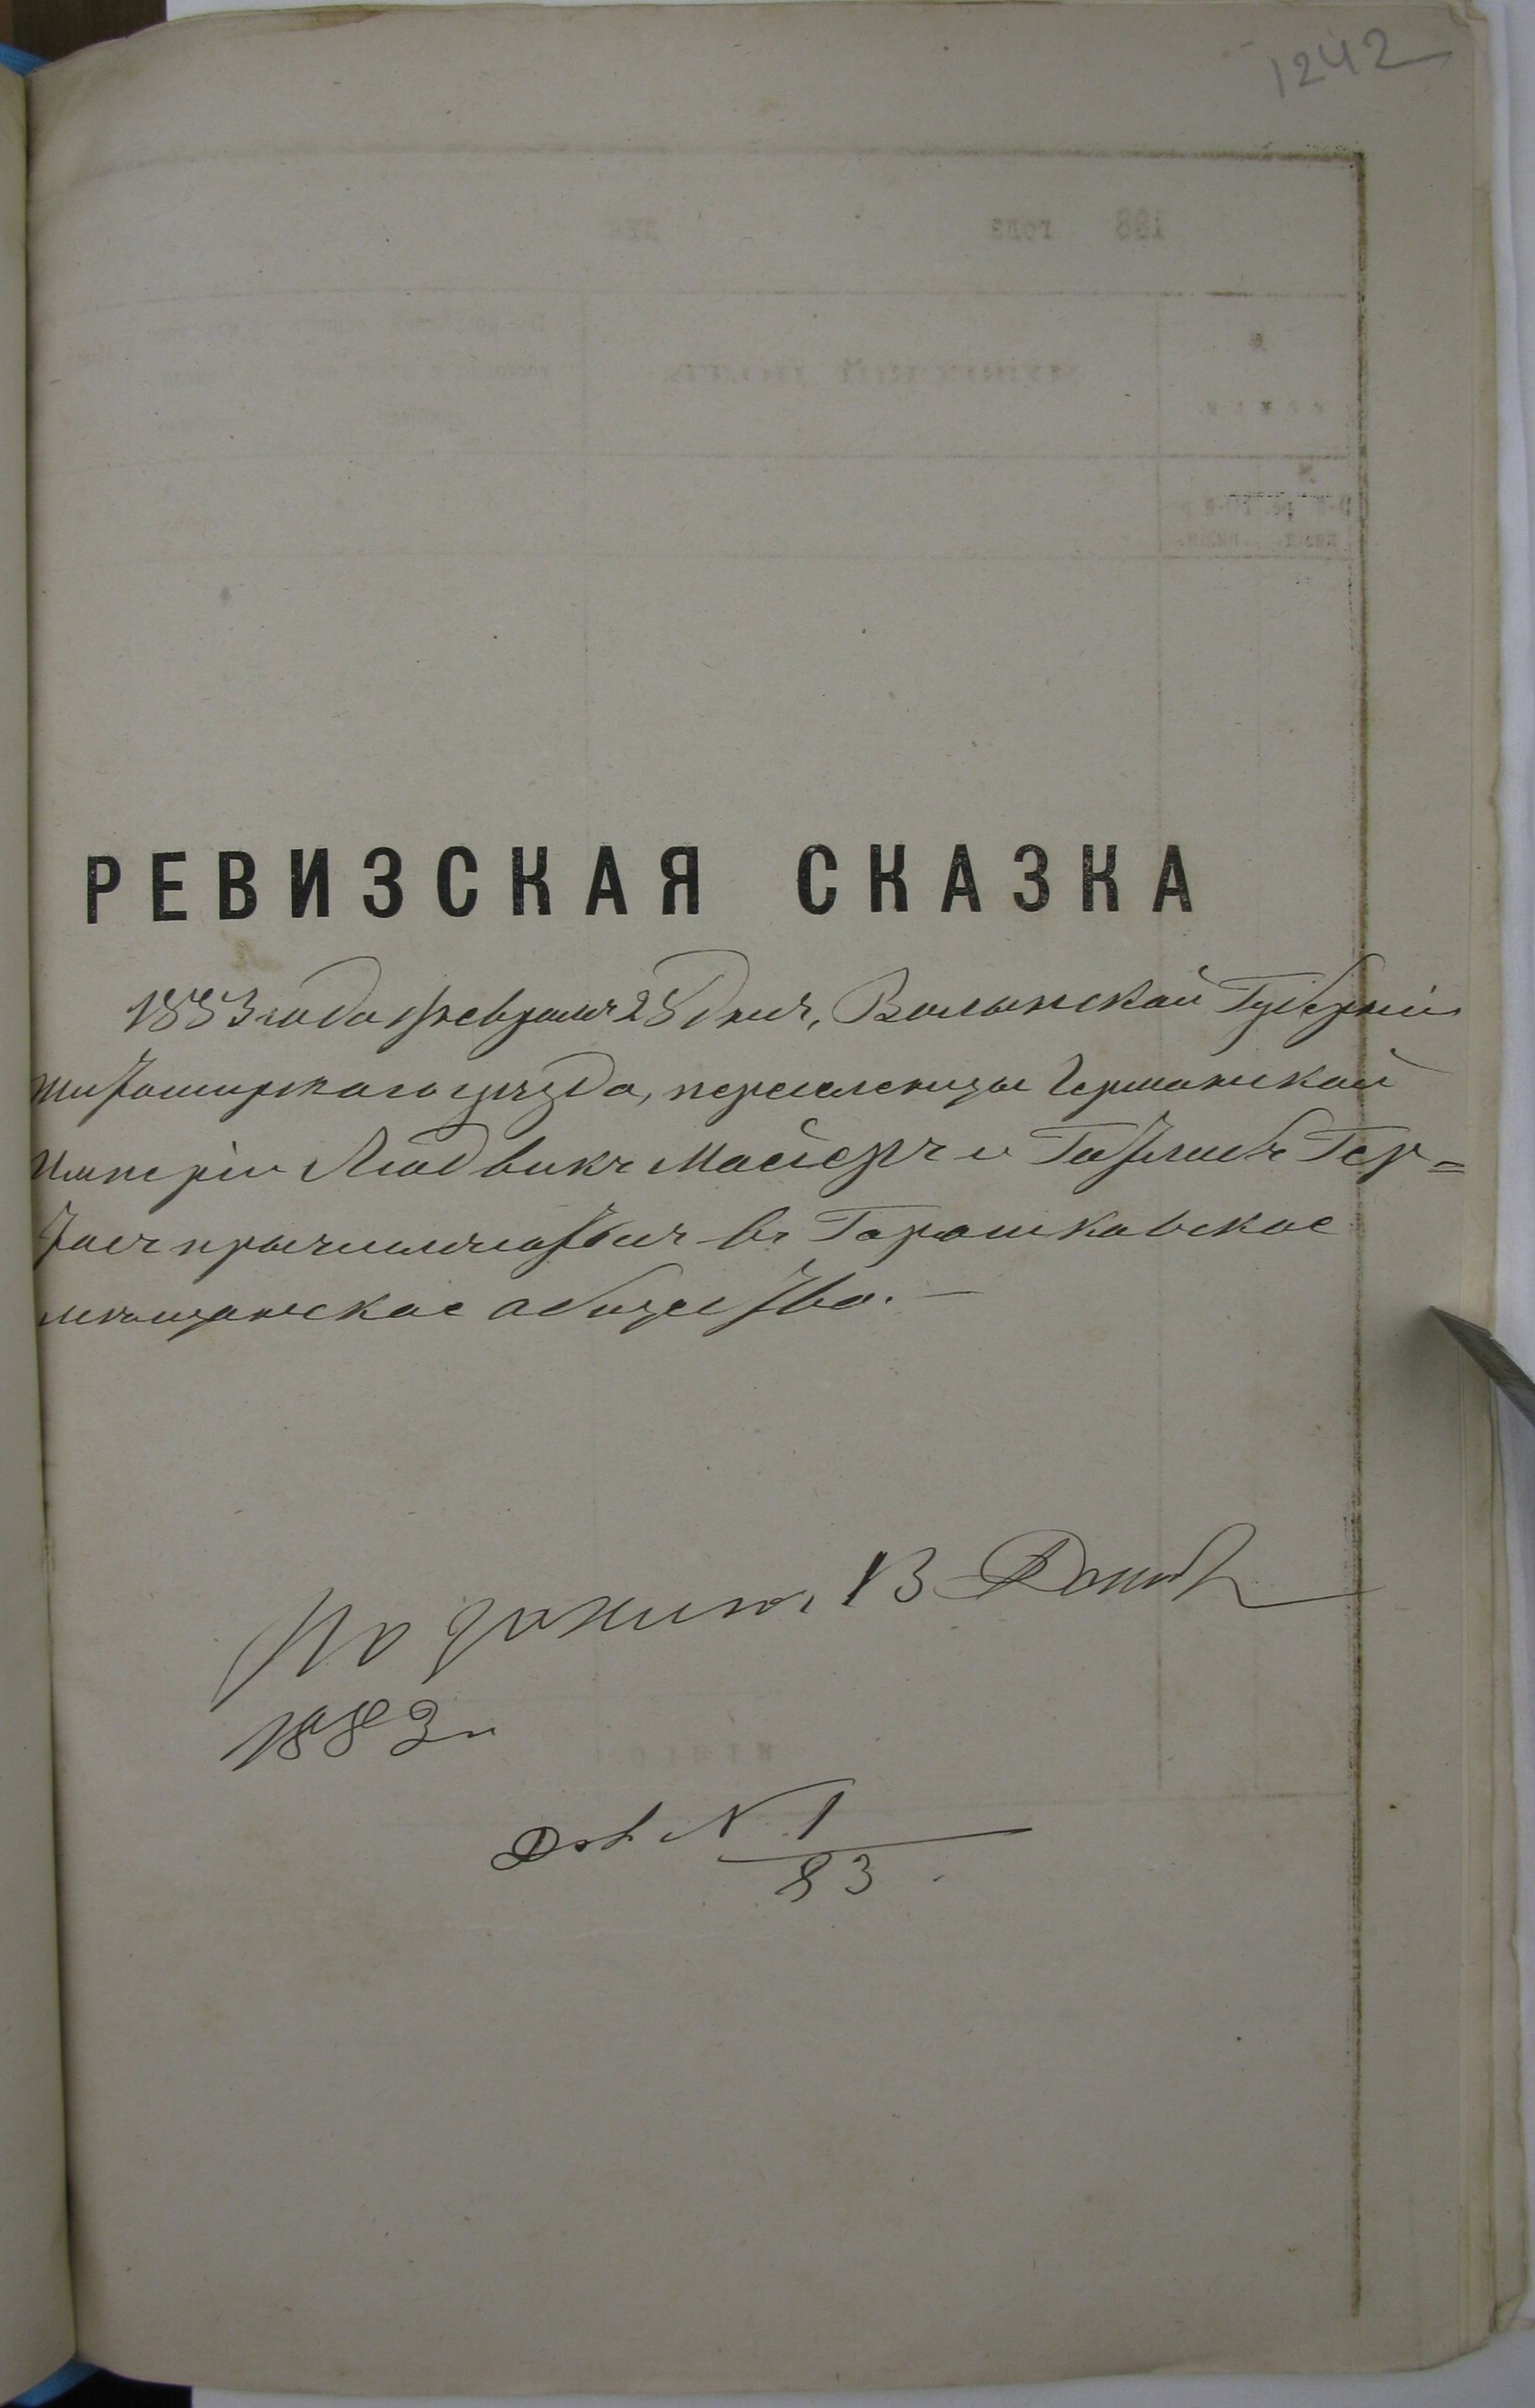 1242
РЕВИЗСКАЯ СКАЗКА
1883 года февраля 28 дня, Волынской Губерніи
Житомирскаго уѣзда, переселенцы Германской
Имперіи Людвикъ Майеръ и Готлибъ Гер=
причисляются въ Горошковское
мѣщанское общество. —
13
1883 г.
№ 1
83